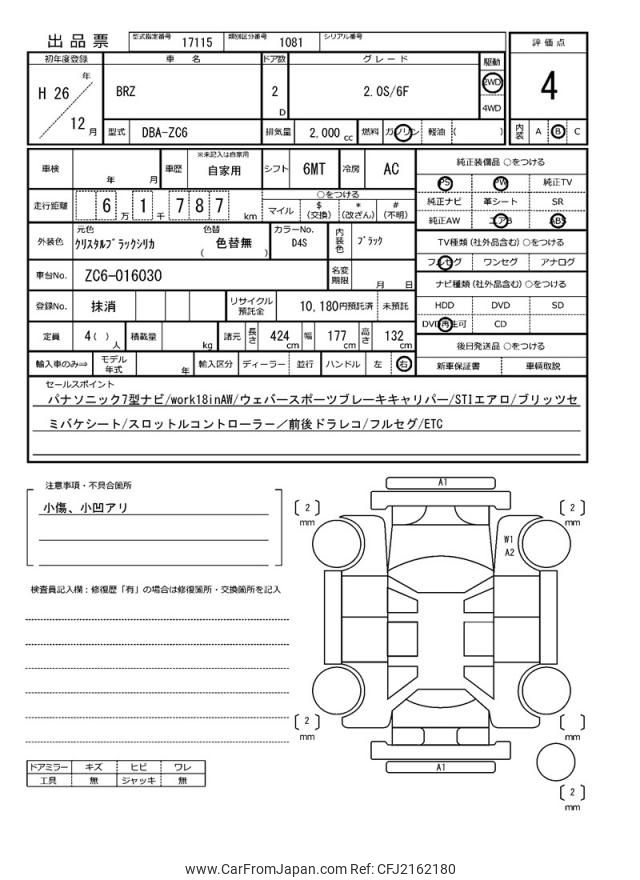 出品票 型式指定番号 17115 類別区分番号 1081 シリアル番号
評価点
4
内装 A B C
初年度登録 車名 ドア数 グレード 駆動
H 26 年 12 月 BRZ 2 D 2.0S/6F 2WD 4WD
型式 DBA-ZC6 排気量 2,000 cc 燃料 ガソリン 軽油 ( )
車検 年 月 車歴 ※未記入は自家用 自家用 シフト 6MT 冷房 AC
走行距離 6 万 1 千 7 8 7 km ○をつける マイル $ (交換) * (改ざん) # (不明)
外装色 元色 クリスタルブラックシリカ 色替 ( 色替無 ) カラーNo. D4S 内装色 ブラック
車台No. ZC6-016030 名変期限 月 日
登録No. 抹消 リサイクル預託金 10,180円預託済 未預託
定員 4( ) 人 積載量 kg 諸元 長さ 424 cm 幅 177 cm 高さ 132 cm
輸入車のみ⇒ モデル年式 年 輸入区分 ディーラー 並行 ハンドル 左 右
純正装備品 ○をつける
PS PW 純正TV
純正ナビ 革シート SR
純正AW エアB ABS
TV種類(社外品含む) ○をつける
フルセグ ワンセグ アナログ
ナビ種類(社外品含む) ○をつける
HDD DVD SD
DVD再生可 CD
後日発送品 ○をつける
新車保証書 車輌取説
セールスポイント
パナソニック7型ナビ/work18inAW/ウェバースポーツブレーキキャリパー/STIエアロ/ブリッツセ
ミバケシート/スロットルコントローラー/前後ドラレコ/フルセグ/ETC
注意事項・不具合箇所
小傷、小凹アリ
検査員記入欄:修復歴「有」の場合は修復箇所・交換箇所を記入
ドアミラー キズ ヒビ ワレ
工具 無 ジャッキ 無
A1
[ 2 ] mm
[ 2 ] mm
W1
A2
[ 2 ] mm
[ ] mm
A1
[ 2 ] mm
www.CarFromJapan.com Ref: CFJ2162180